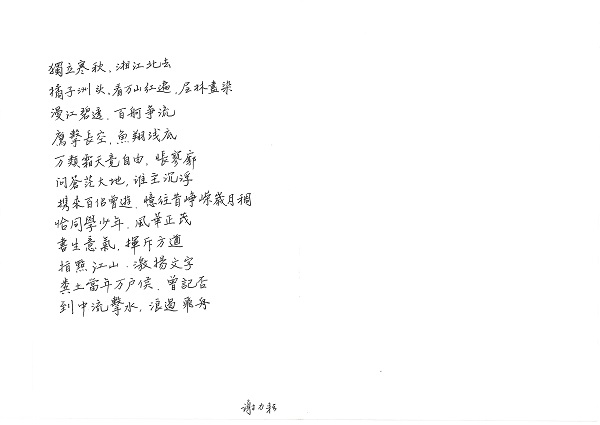 獨立寒秋，湘江北去
橘子洲头，看万山红遍，层林盡染
漫江碧透，百舸争流
鹰擊長空，魚翔浅底
万類霜天竟自由，悵寥廓
问蒼茫大地，谁主沉浮
携来百侣曾遊，憶往昔峥嵘歲月稠
恰同學少年，風華正茂
書生意氣，揮斥方遒
指點江山，激揚文字
粪土當年万户侯，曾記否
到中流擊水，浪遏飛舟
谢力